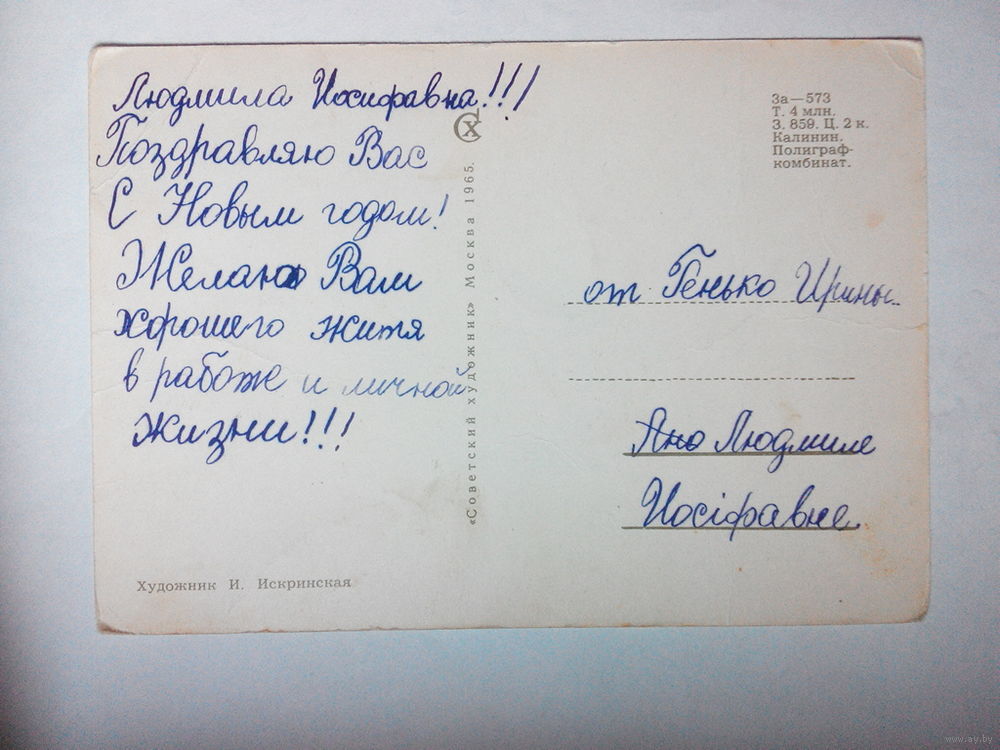 Людмила Иосифавна!!!
Поздравляю Вас
С Новым годом!
Желаю Вам
хорошего житя
в работе и личной
жизни!!!
Художник И. Искринская
«Советский художник» Москва 1965.
За—573
Т. 4 млн.
З. 859. Ц. 2 к.
Калинин.
Полиграф-
комбинат.
от Генько Ирины
Людмиле
Иосіфавне
www.ay.by